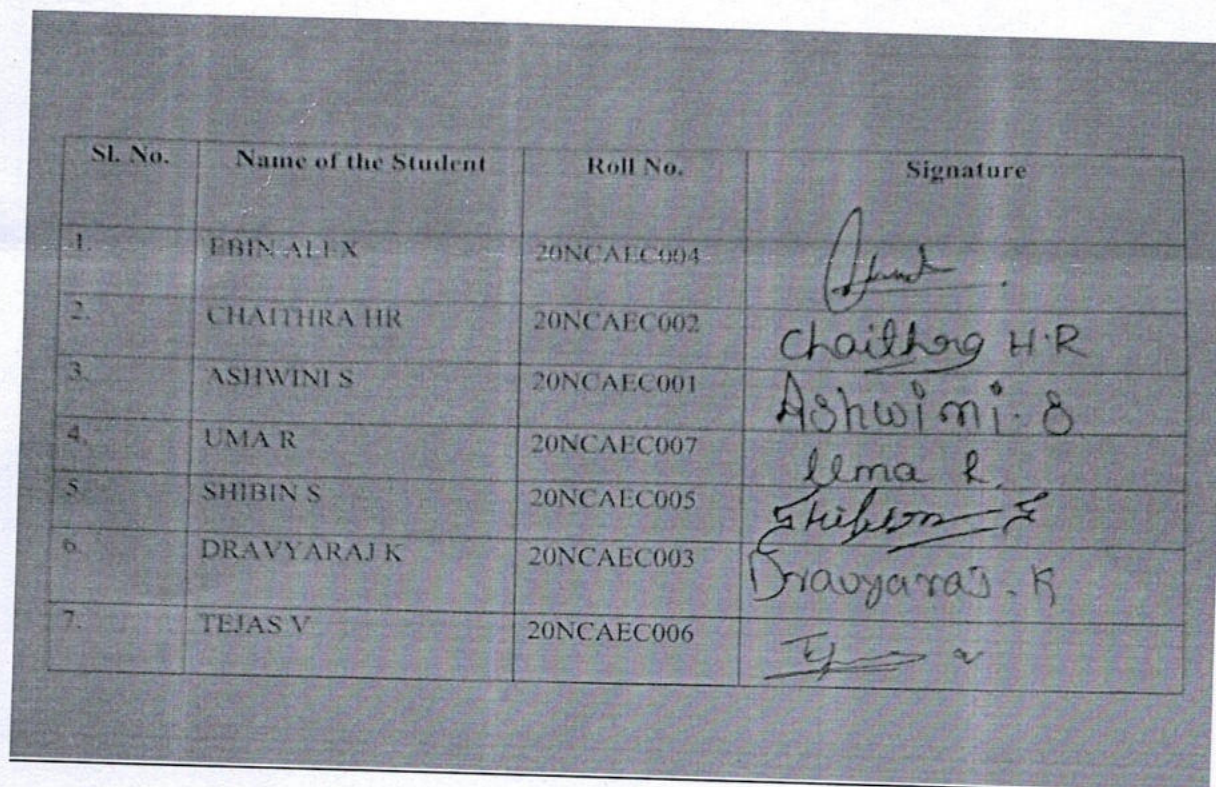 Sl. No. Name of the Student Roll No. Signature
1. EBIN ALEX 20NCAEC004
2. CHAITHRA HR 20NCAEC002 Chaithra H.R
3. ASHWINI S 20NCAEC001 Ashwini. S
4. UMA R 20NCAEC007 Uma R.
5. SHIBIN S 20NCAEC005 Shibin S
6. DRAVYARAJ K 20NCAEC003 Dravyaraj. K
7. TEJAS V 20NCAEC006